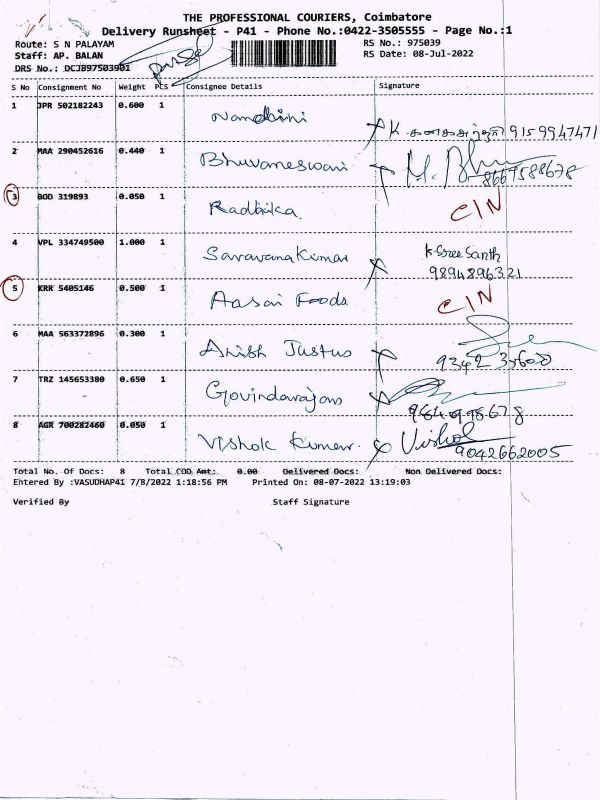 THE PROFESSIONAL COURIERS, Coimbatore
Delivery Runsheet - P41 - Phone No.:0422-3505555 - Page No.:1
Route: S N PALAYAM RS No.: 975039
Staff: AP. BALAN RS Date: 08-Jul-2022
DRS No.: DCJB97503901
S No Consignment No Weight PCS Consignee Details Signature
1 JPR 502182243 0.600 1 Nandhini K. 9159947471
2 MAA 290452616 0.440 1 Bhuvaneswari M. Bhu
8667588678
3 BOD 319893 0.050 1 Radhika CIN
4 VPL 334749500 1.000 1 Saravana Kumar K Sree Santh
9894896321
5 KRR 5405146 0.500 1 Aasai Foods CIN
6 MAA 563372896 0.300 1 Anish Justus
7 TRZ 145653380 0.650 1 Govindarajan
8 AGR 700282460 0.050 1 Vishok Kumar Vishol
9042662005
Total No. Of Docs: 8 Total COD Amt: 0.00 Delivered Docs: Non Delivered Docs:
Entered By :VASUDHAP41 7/8/2022 1:18:56 PM Printed On: 08-07-2022 13:19:03
Verified By Staff Signature